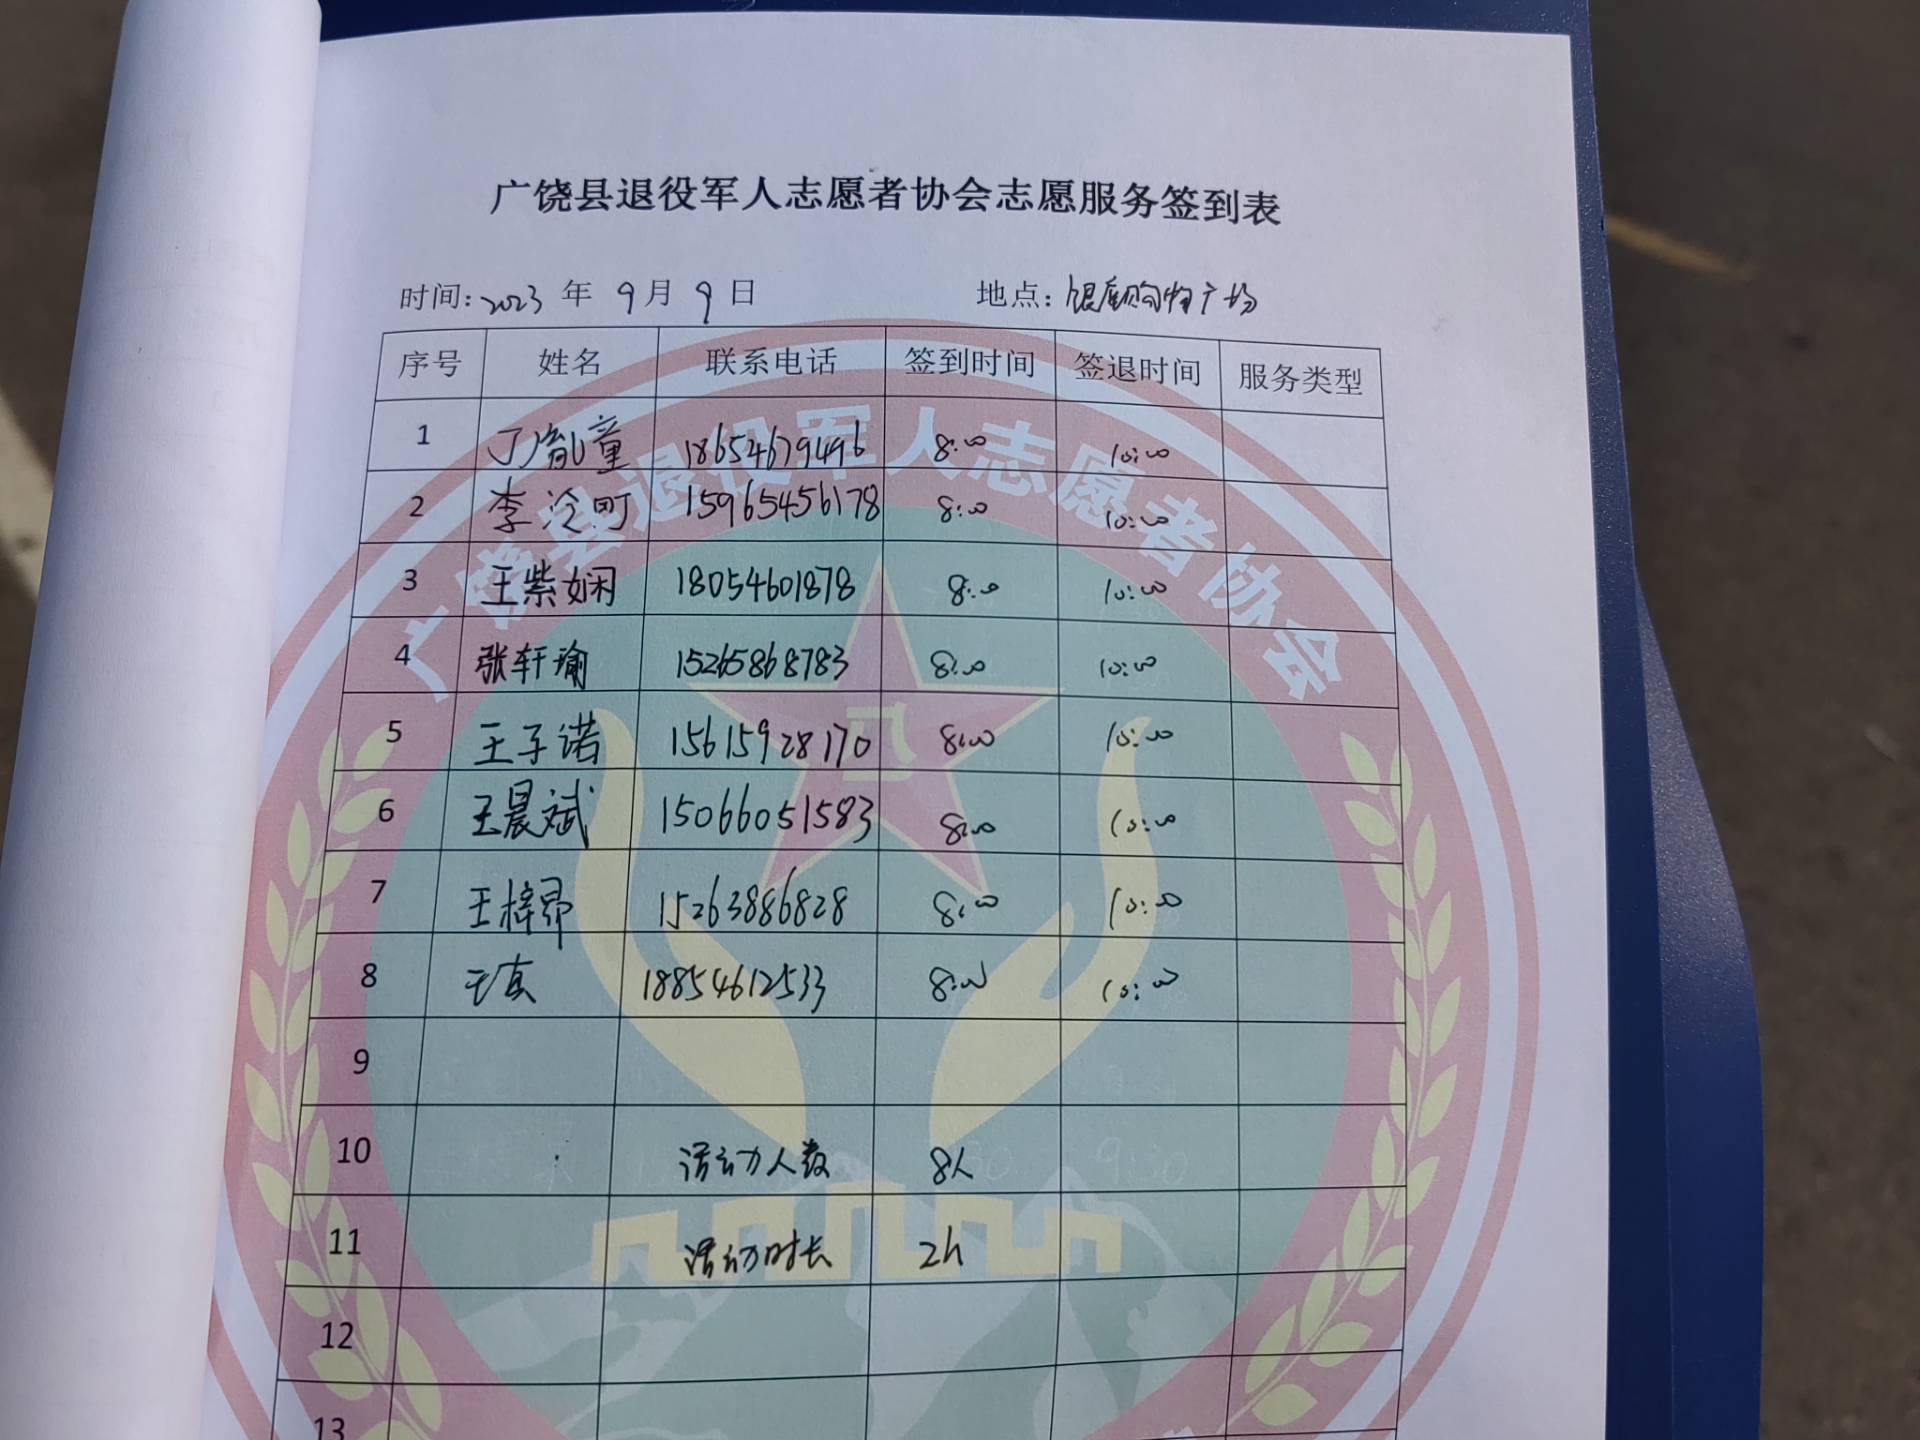 广饶县退役军人志愿者协会志愿服务签到表
时间:2023 年 9 月 9 日 地点:银座购物广场
序号 姓名 联系电话 签到时间 签退时间 服务类型
1 丁胤童 18654679496 8:00 10:00
2 李泠町 15965456178 8:00 10:00
3 王紫娴 18054601878 8:00 10:00
4 张轩瑜 15265868783 8:00 10:00
5 王子诺 15615928170 8:00 10:00
6 王晨斌 15066051583 8:00 10:00
7 王梓昂 15263886828 8:00 10:00
8 王真 18854612533 8:00 10:00
9
10 活动人数 8人
11 活动时长 2h
12
13
广饶县退役军人志愿者协会
八一